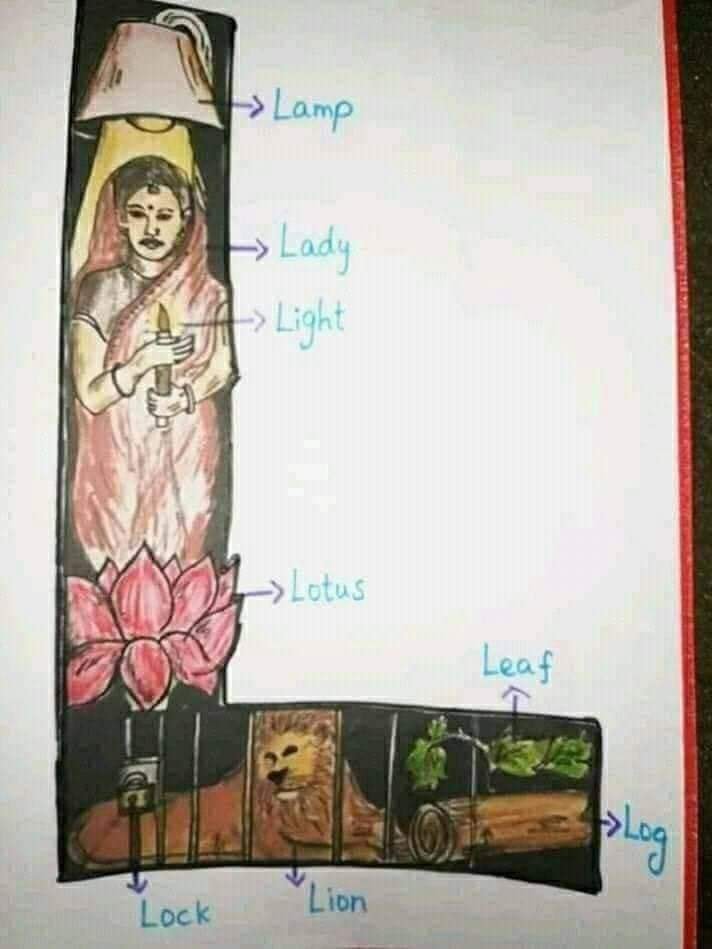 Lamp
Lady
Light
Lotus
Leaf
Log
Lock
Lion